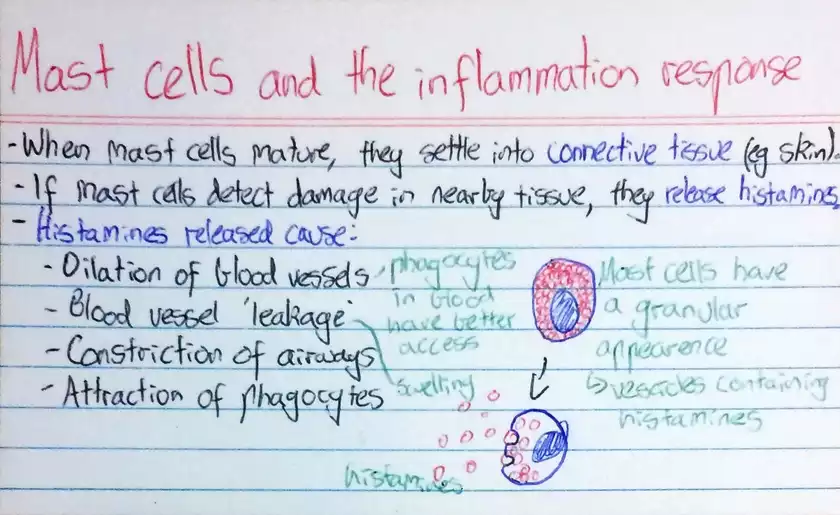 Mast cells and the inflammation response
- When mast cells mature, they settle into connective tissue (eg skin).
- If mast cells detect damage in nearby tissue, they release histamines
- Histamines released cause:
- Dilation of blood vessels
- Blood vessel 'leakage'
- Constriction of airways
- Attraction of phagocytes
phagocytes
in blood
have better
access
swelling
Mast cells have
a granular
appearence
↳ vesicles containing
histamines
histamines